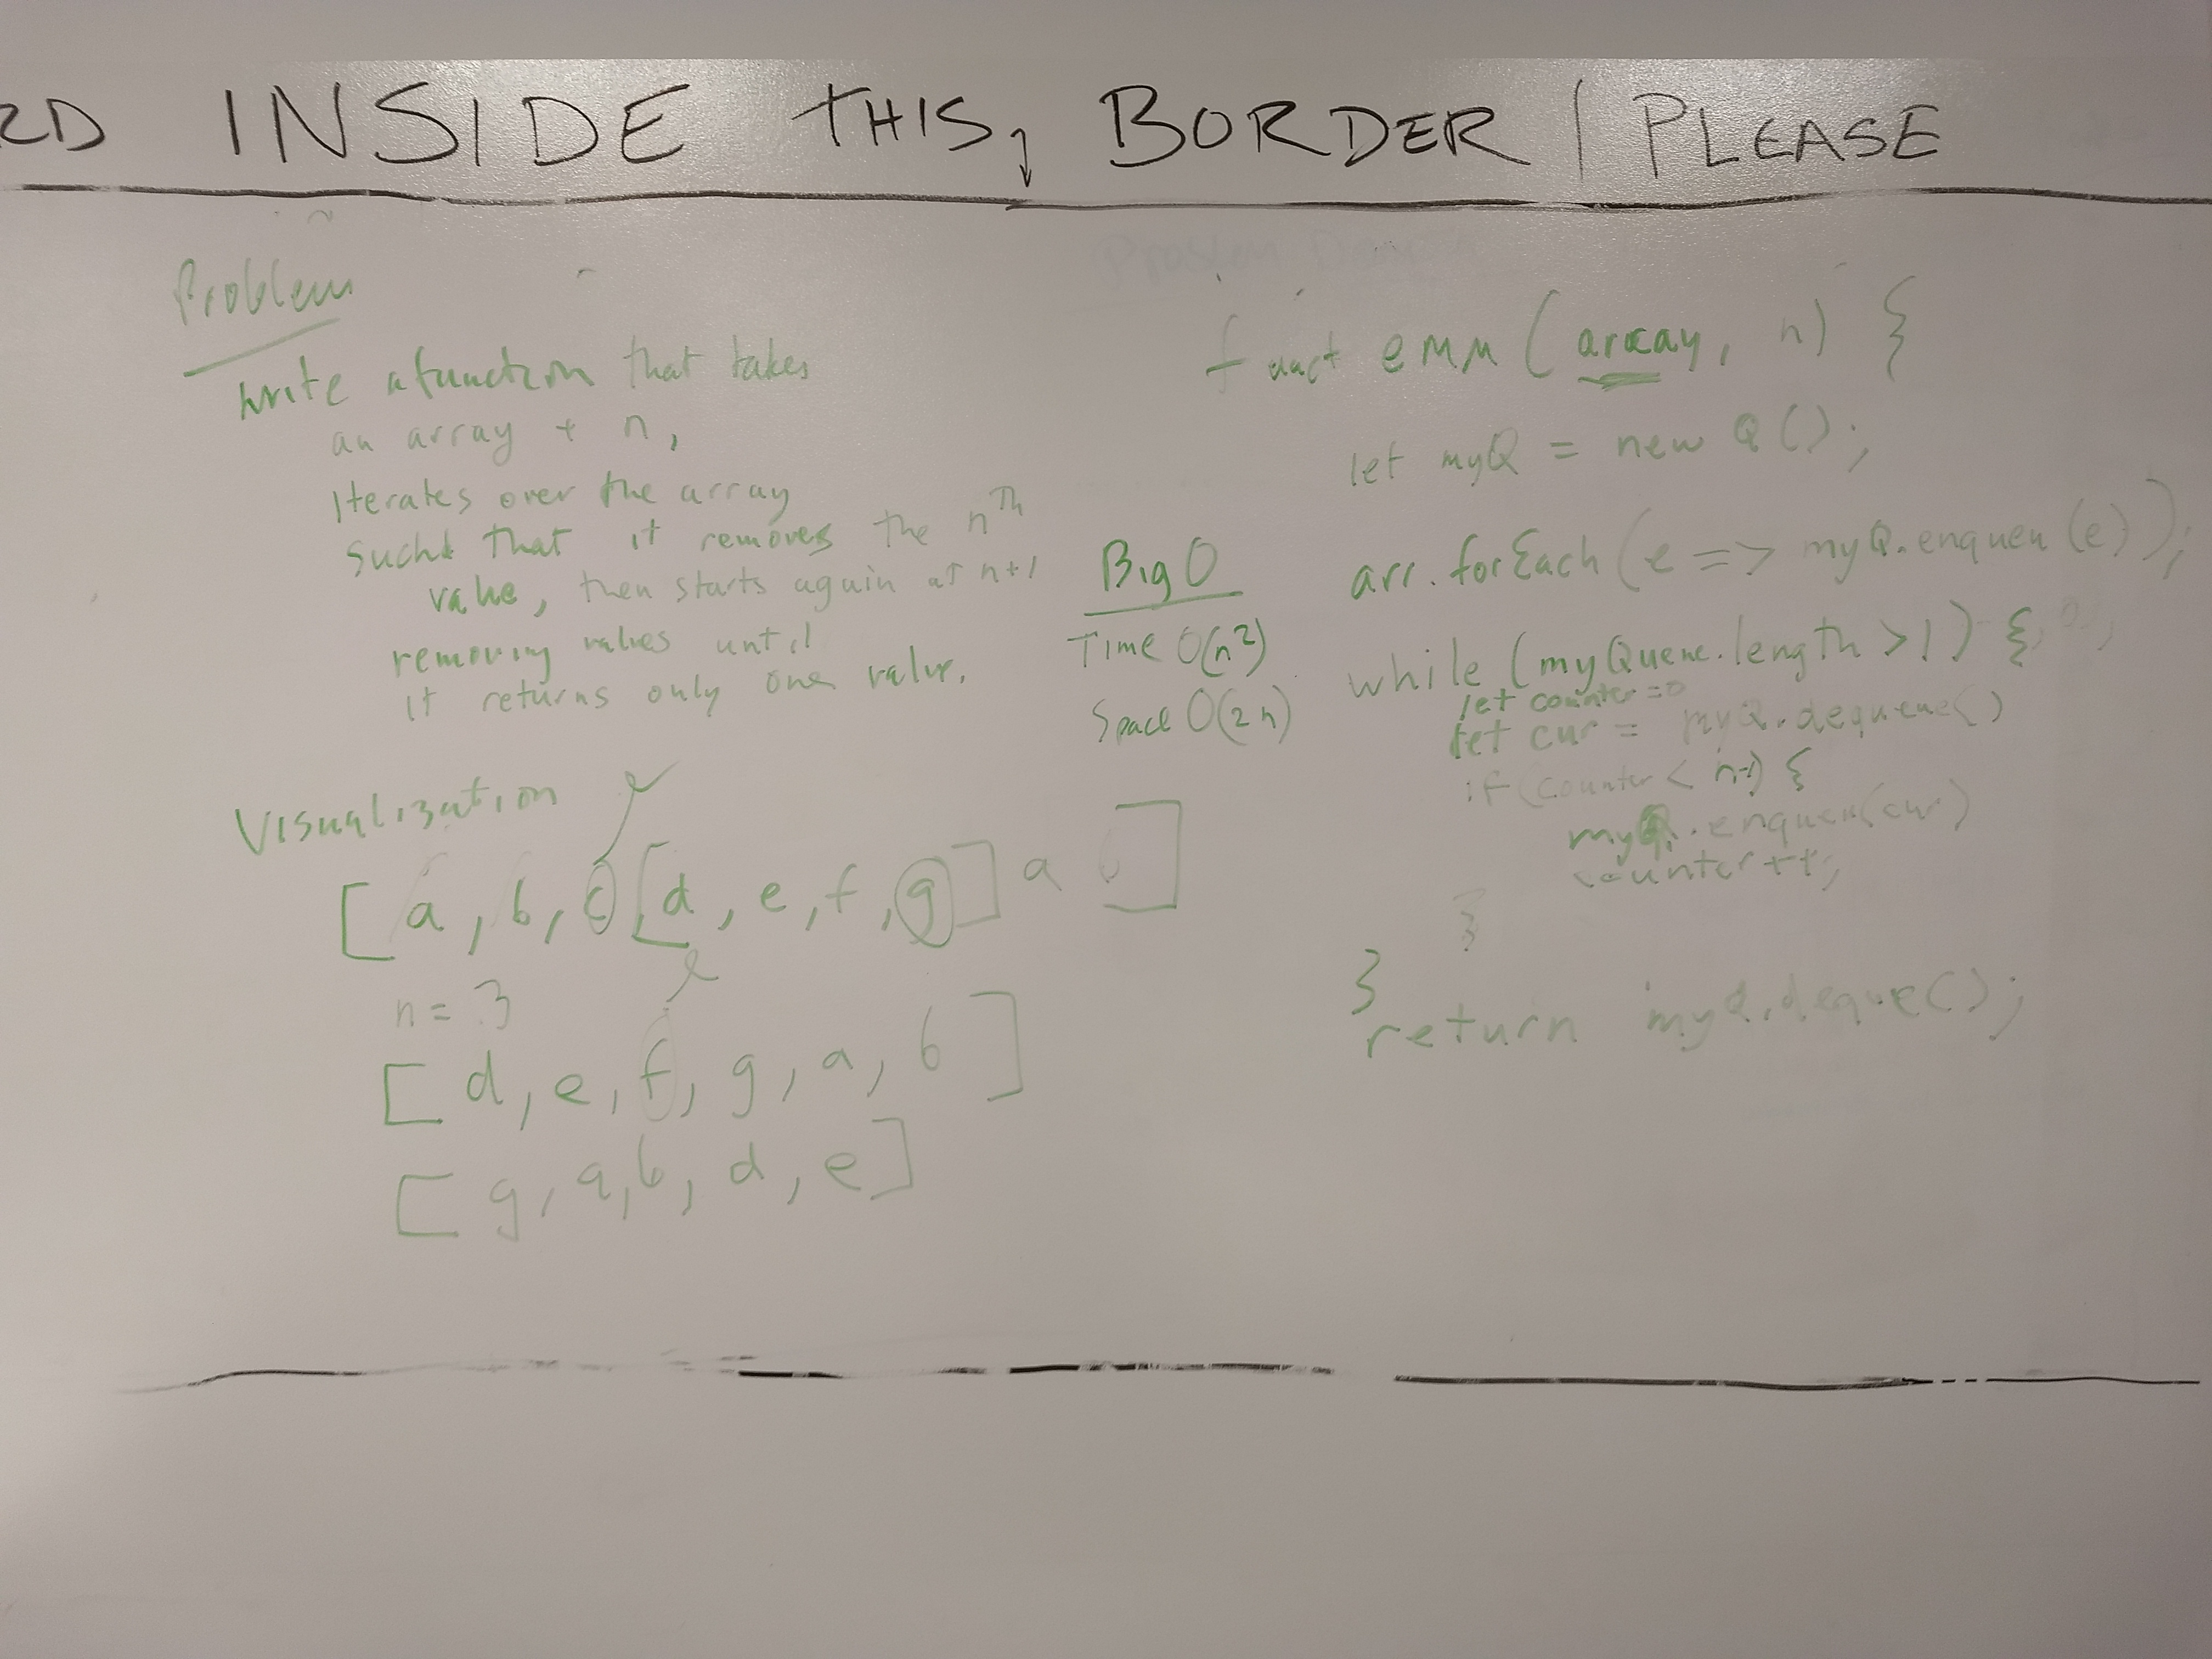 INSIDE THIS, BORDER | PLEASE
Problem
write a function that takes
an array + n,
Iterates over the array
such that it removes the nTh
value, then starts again at n+1
removing values until
it returns only one value.
Visualization
[ a, b, c [ d, e, f, g ] a b ]
n = 3
[ d, e, f, g, a, b ]
[ g, a, b, d, e ]
Big O
Time O(n²)
Space O(2n)
Problem Domain
funct emm ( array, n) {
let myQ = new Q();
arr.forEach (e => myQ.enqueu(e));
while (myQueue.length > 1) {
let counter = 0
let cur = myQ.dequeue()
if (counter < n-1) {
myQ.enqueu(cur)
counter++;
}
}
return myQ.deque();